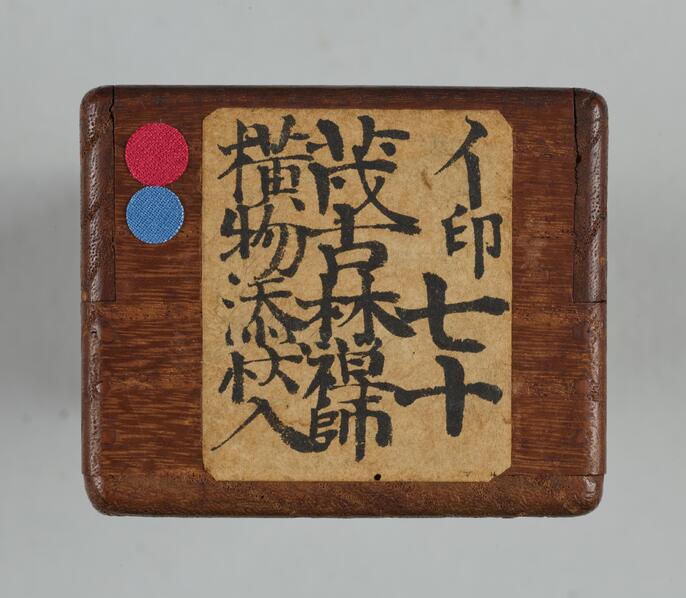 イ印 七十
茂古林禅師
横物添状入